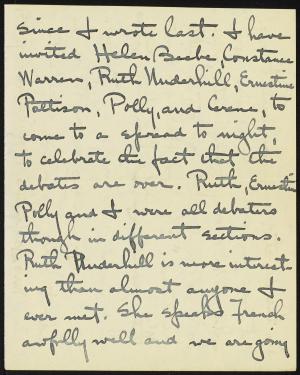 since I wrote last. I have
invited Helen Beebe, Constance
Warren, Ruth Underhill, Ernestine
Pattison, Polly, and Cerene, to
come to a spread to night,
to celebrate the fact that the
debates are over. Ruth, Ernestine
Polly and I were all debaters
though in different sections.
Ruth Underhill is more interest-
ing than almost anyone I
ever met. She speaks French
awfully well and we are going